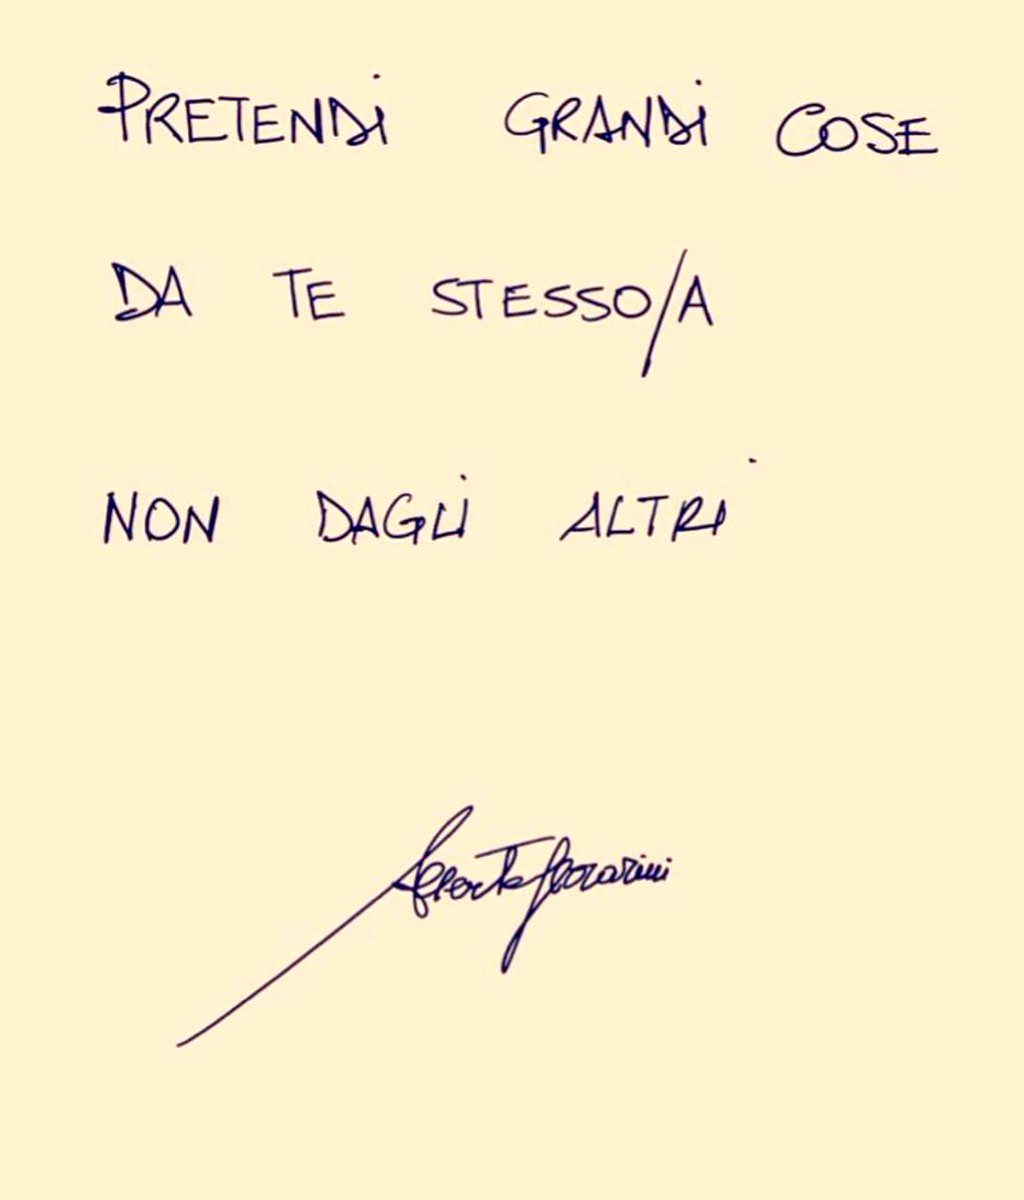 PRETENDi GRANDi COSE
DA TE STESSO/A
NON DAGLi ALTRi